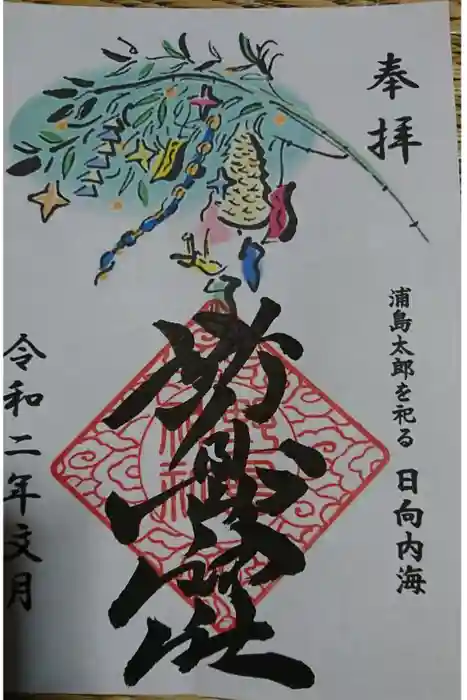 奉拝
浦島太郎を祀る 日向内海
野島神社
令和二年文月